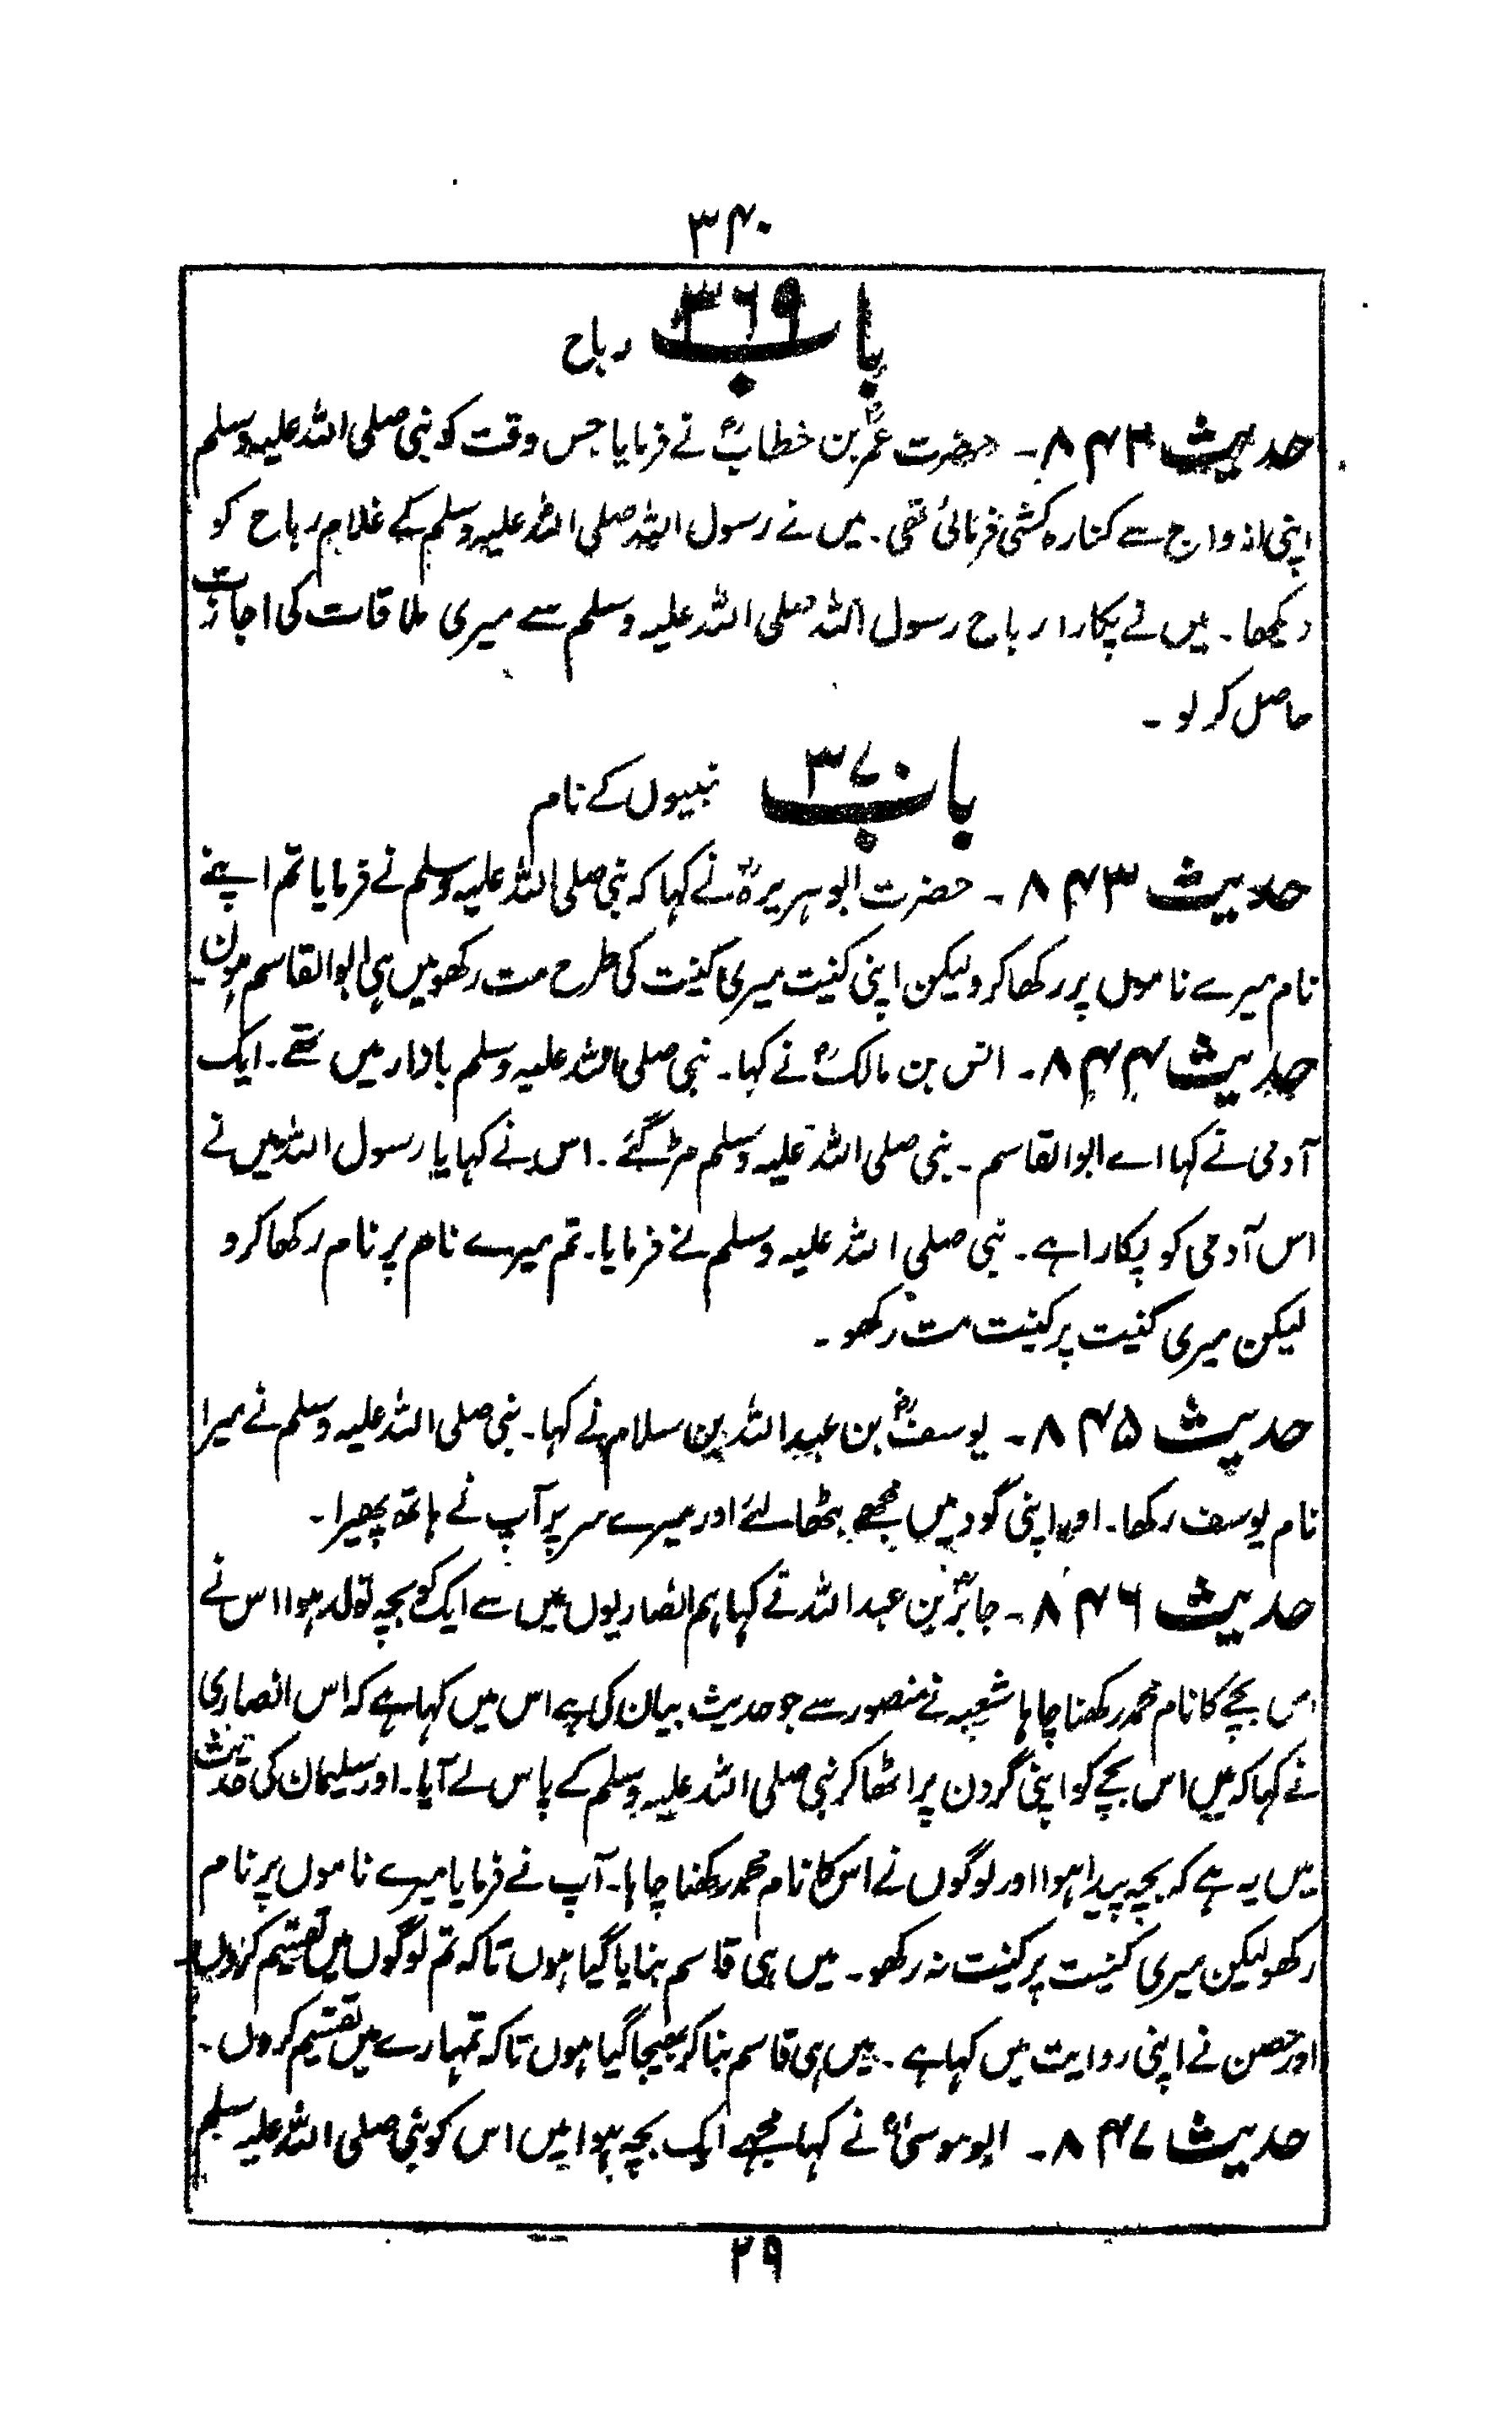 ۳۴۰
باب ۳۶۹ رباح
حدیث ۸۴۲۔ حضرت عمرؓ بن خطابؓ نے فرمایا جس وقت کو نبی صلی اللہ علیہ وسلم
اپنی ازواج سے کنارہ کشی فرمائی تھی۔ میں نے رسول اللہ صلی اللہ علیہ وسلم کے غلام رباح کو
دیکھا۔ میں نے پکارا رباح رسول اللہ صلی اللہ علیہ وسلم سے میری ملاقات کی اجازت
حاصل کر لو۔
باب ۳۷۰ نبیوں کے نام
حدیث ۸۴۳۔ حضرت ابو ہریرہؓ نے کہا کہ نبی صلی اللہ علیہ وسلم نے فرمایا تم اپنے
نام میرے ناموں پر رکھا کرو لیکن اپنی کنیت میری کنیت کی طرح مت رکھو میں ہی ابوالقاسم ہوں
حدیث ۸۴۴۔ انس بن مالکؓ نے کہا۔ نبی صلی اللہ علیہ وسلم بازار میں تھے۔ ایک
آدمی نے کہا اے ابوالقاسم۔ نبی صلی اللہ علیہ وسلم مڑ گئے۔ اس نے کہا یا رسول اللہ میں نے
اس آدمی کو پکارا ہے۔ نبی صلی اللہ علیہ وسلم نے فرمایا۔ تم میرے نام پر نام رکھا کرو
لیکن میری کنیت پر کنیت مت رکھو۔
حدیث ۸۴۵۔ یوسفؓ بن عبداللہ بن سلام نے کہا۔ نبی صلی اللہ علیہ وسلم نے میرا
نام یوسف رکھا۔ اور اپنی گود میں مجھے بٹھا لئے اور میرے سر پر آپ نے ہاتھ پھیرا۔
حدیث ۸۴۶۔ جابرؓ بن عبداللہ نے کہا ہم انصاریوں میں سے ایک کو بچہ تولد ہوا اس نے
اس بچے کا نام محمد رکھنا چاہا شعبہ نے منصور سے جو حدیث بیان کی ہے اس میں کہا ہے کہ اس انصاری
نے کہا کہ میں اس بچے کو اپنی گردن پر اٹھا کر نبی صلی اللہ علیہ وسلم کے پاس لے آیا۔ اور سلیمان کی حدیث
میں یہ ہے کہ بچہ پیدا ہوا اور لوگوں نے اس کا نام محمد رکھنا چاہا۔ آپ نے فرمایا میرے ناموں پر نام
رکھو لیکن میری کنیت پر کنیت نہ رکھو۔ میں ہی قاسم بنایا گیا ہوں تاکہ تم لوگوں میں تقسیم کروں۔
اور حصن نے اپنی روایت میں کہا ہے۔ میں ہی قاسم بنا کر بھیجا گیا ہوں تاکہ تمہارے میں تقسیم کروں۔
حدیث ۸۴۷۔ ابو موسیٰؓ نے کہا مجھے ایک بچہ ہوا میں اس کو نبی صلی اللہ علیہ وسلم
۲۹